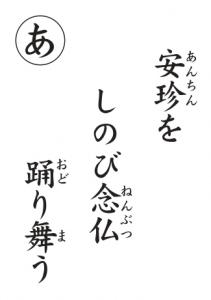 あ
安珍を
しのび念仏
踊り舞う
あんちん
ねんぶつ
おど
ま